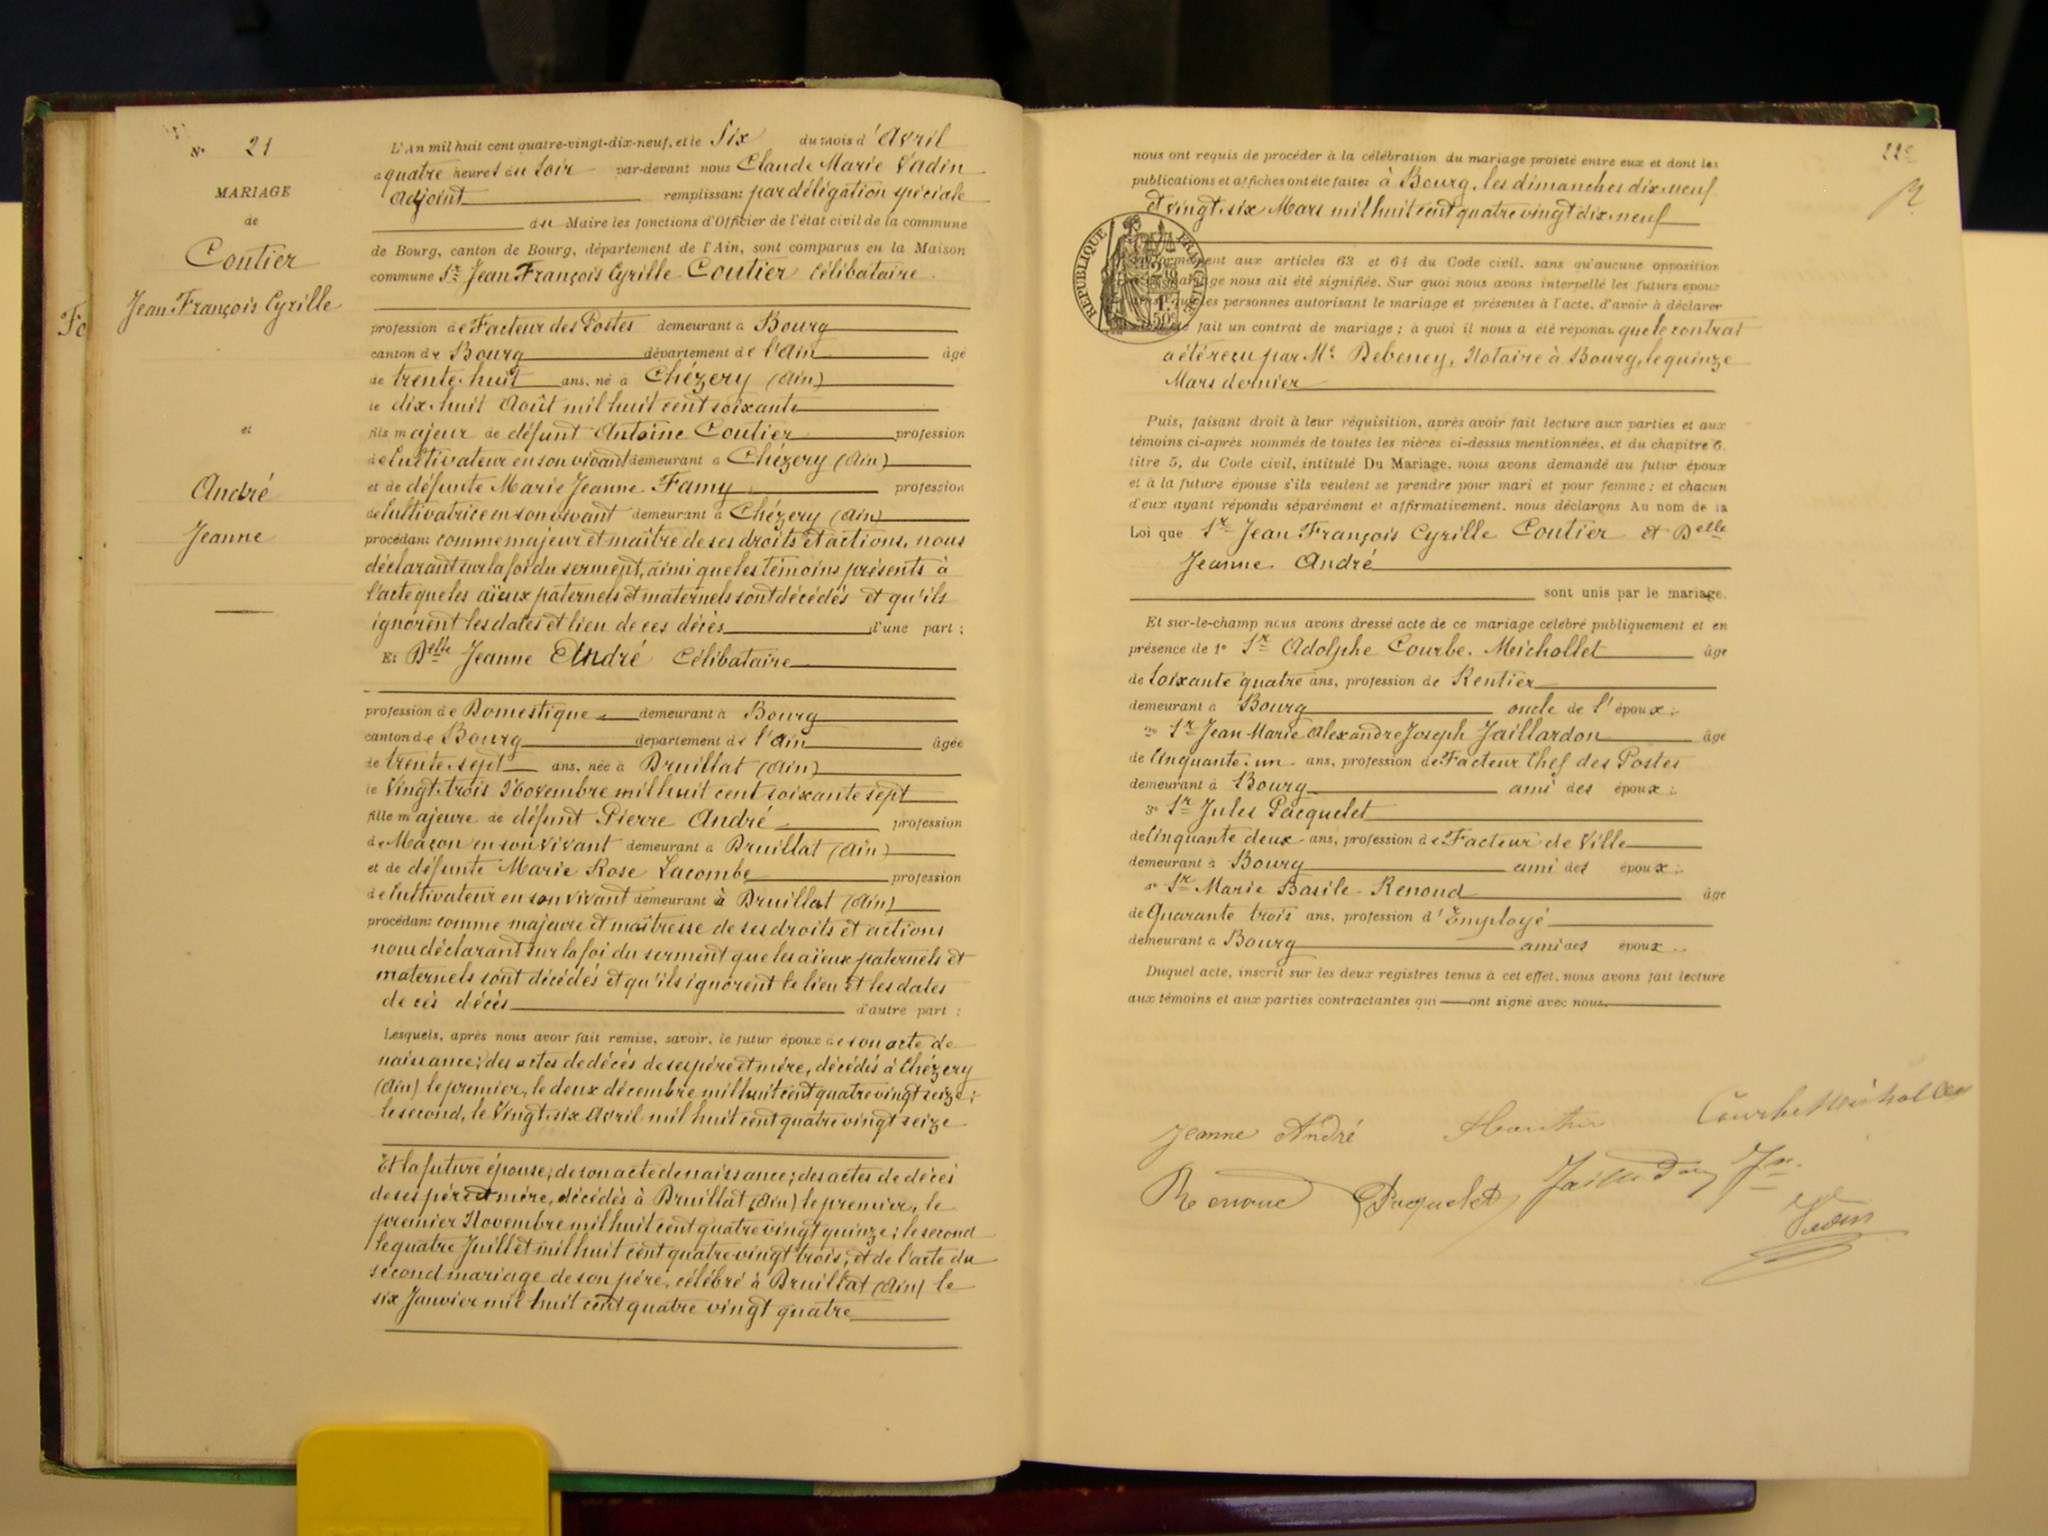 N° 21
MARIAGE
de
Coutier
Jean François Cyrille
et
André
Jeanne
Fo
L'An mil huit cent quatre-vingt-dix-neuf, et le Six du mois d'Avril
à quatre heures du Soir par-devant nous Claude Marie Vadin
Adjoint remplissant par délégation spéciale
du Maire les fonctions d'Officier de l'état civil de la commune
de Bourg, canton de Bourg, département de l'Ain, sont comparus en la Maison
commune Sr Jean François Cyrille Coutier Célibataire
profession de Facteur des Postes demeurant à Bourg
canton de Bourg département de l'Ain âgé
de trente-huit ans, né à Chézery (Ain)
le dix-huit Août mil huit cent soixante
fils majeur de défunt Antoine Coutier profession
de Cultivateur en son vivant demeurant à Chézery (Ain)
et de défunte Marie Jeanne Famy profession
de Cultivatrice en son vivant demeurant à Chézery (Ain)
procédant comme majeur et maître de ses droits et actions, nous
déclarant sur la foi du serment, ainsi que les témoins présents à
l'acte que les aïeux paternels et maternels sont décédés et qu'ils
ignorent les dates et lieu de ces décès d'une part ;
Et Delle Jeanne André Célibataire
profession de Domestique demeurant à Bourg
canton de Bourg département de l'Ain âgée
de trente-sept ans, née à Druillat (Ain)
le Vingt-trois Novembre mil huit cent soixante sept
fille majeure de défunt Pierre André profession
de Maçon en son vivant demeurant à Druillat (Ain)
et de défunte Marie Rose Lacombe profession
de Cultivateur en son vivant demeurant à Druillat (Ain)
procédant comme majeure et maîtresse de ses droits et actions
nous déclarant sur la foi du serment que les aïeux paternels et
maternels sont décédés et qu'ils ignorent le lieu et les dates
de ces décès d'autre part ;
Lesquels, après nous avoir fait remise, savoir, le futur époux de son acte de
naissance; des actes de décès de ses père et mère, décédés à Chézery
(Ain) le premier, le deux décembre mil huit cent quatre vingt seize ;
le second, le Vingt-six Avril mil huit cent quatre vingt seize
Et la future épouse; de son acte de naissance; des actes de décès
de ses père et mère, décédés à Druillat (Ain) le premier, le
premier Novembre mil huit cent quatre vingt quinze ; le second
le quatre Juillet mil huit cent quatre vingt trois; et de l'acte du
second mariage de son père, célébré à Druillat (Ain) le
six Janvier mil huit cent quatre vingt quatre
22e
nous ont requis de procéder à la célébration du mariage projeté entre eux et dont les
publications et affiches ont été faites à Bourg, les dimanches dix-neuf
et vingt-six Mars mil huit cent quatre vingt dix-neuf
RÉPUBLIQUE FRANÇAISE
conformément aux articles 63 et 64 du Code civil, sans qu'aucune opposition
mariage nous ait été signifiée. Sur quoi nous avons interpellé les futurs époux
les personnes autorisant le mariage et présentes à l'acte, d'avoir à déclarer
fait un contrat de mariage ; à quoi il nous a été répondu que le contrat
a été reçu par Me Debeney, Notaire à Bourg, le quinze
Mars dernier
Puis, faisant droit à leur réquisition, après avoir fait lecture aux parties et aux
témoins ci-après nommés de toutes les pièces ci-dessus mentionnées, et du chapitre 6,
titre 5, du Code civil, intitulé Du Mariage, nous avons demandé au futur époux
et à la future épouse s'ils veulent se prendre pour mari et pour femme ; et chacun
d'eux ayant répondu séparément et affirmativement, nous déclarons Au nom de la
Loi que Sr Jean François Cyrille Coutier et Delle
Jeanne André
sont unis par le mariage.
Et sur-le-champ nous avons dressé acte de ce mariage célébré publiquement et en
présence de 1° Sr Adolphe Courbe-Michollet âgé
de Soixante quatre ans, profession de Rentier
demeurant à Bourg oncle de l'époux ;
2° Sr Jean Marie Alexandre Joseph Jaillardon âgé
de Cinquante-un ans, profession de Facteur Chef des Postes
demeurant à Bourg ami des époux ;
3° Sr Jules Pacquelet
de Cinquante deux ans, profession de Facteur de Ville
demeurant à Bourg ami des époux ;
Sr Marie Basile Renoud âgé
de Quarante trois ans, profession d'Employé
demeurant à Bourg ami des époux
Duquel acte, inscrit sur les deux registres tenus à cet effet, nous avons fait lecture
aux témoins et aux parties contractantes qui ont signé avec nous.
Jeanne André
Courbe Michollet
Renoud Pacquelet Jaillardon Jh
Vadin